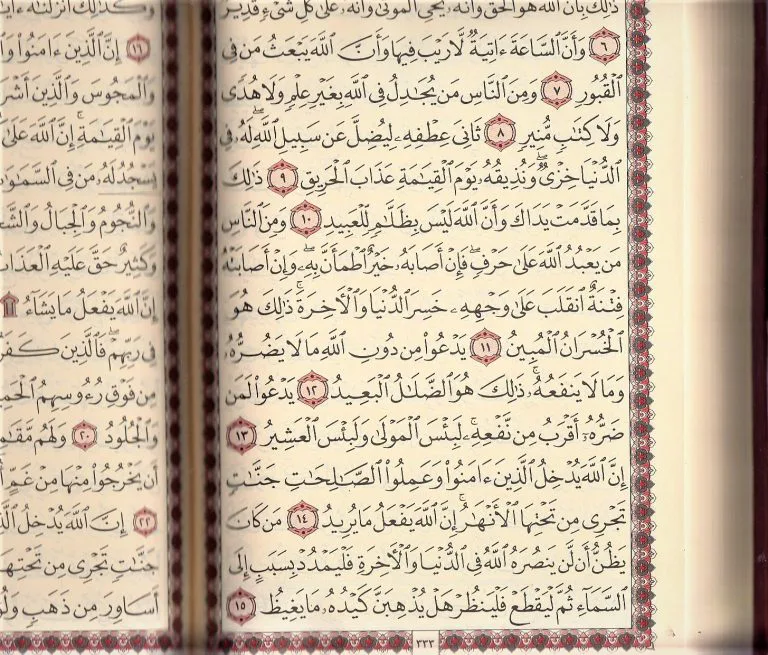 ذَٰلِكَ بِأَنَّ ٱللَّهَ هُوَ ٱلۡحَقُّ وَأَنَّهُۥ يُحۡيِ ٱلۡمَوۡتَىٰ وَأَنَّهُۥ عَلَىٰ كُلِّ شَيۡءٖ قَدِيرٞ
٦ وَأَنَّ ٱلسَّاعَةَ ءَاتِيَةٞ لَّا رَيۡبَ فِيهَا وَأَنَّ ٱللَّهَ يَبۡعَثُ مَن فِي
ٱلۡقُبُورِ ٧ وَمِنَ ٱلنَّاسِ مَن يُجَٰدِلُ فِي ٱللَّهِ بِغَيۡرِ عِلۡمٖ وَلَا هُدٗى
وَلَا كِتَٰبٖ مُّنِيرٖ ٨ ثَانِيَ عِطۡفِهِۦ لِيُضِلَّ عَن سَبِيلِ ٱللَّهِۖ لَهُۥ فِي
ٱلدُّنۡيَا خِزۡيٞۖ وَنُذِيقُهُۥ يَوۡمَ ٱلۡقِيَٰمَةِ عَذَابَ ٱلۡحَرِيقِ ٩ ذَٰلِكَ
بِمَا قَدَّمَتۡ يَدَاكَ وَأَنَّ ٱللَّهَ لَيۡسَ بِظَلَّٰمٖ لِّلۡعَبِيدِ ١٠ وَمِنَ ٱلنَّاسِ
مَن يَعۡبُدُ ٱللَّهَ عَلَىٰ حَرۡفٖۖ فَإِنۡ أَصَابَهُۥ خَيۡرٌ ٱطۡمَأَنَّ بِهِۦۖ وَإِنۡ أَصَابَتۡهُ
فِتۡنَةٌ ٱنقَلَبَ عَلَىٰ وَجۡهِهِۦ خَسِرَ ٱلدُّنۡيَا وَٱلۡأٓخِرَةَۚ ذَٰلِكَ هُوَ
ٱلۡخُسۡرَانُ ٱلۡمُبِينُ ١١ يَدۡعُواْ مِن دُونِ ٱللَّهِ مَا لَا يَضُرُّهُۥ
وَمَا لَا يَنفَعُهُۥۚ ذَٰلِكَ هُوَ ٱلضَّلَٰلُ ٱلۡبَعِيدُ ١٢ يَدۡعُواْ لَمَن
ضَرُّهُۥٓ أَقۡرَبُ مِن نَّفۡعِهِۦۚ لَبِئۡسَ ٱلۡمَوۡلَىٰ وَلَبِئۡسَ ٱلۡعَشِيرُ ١٣
إِنَّ ٱللَّهَ يُدۡخِلُ ٱلَّذِينَ ءَامَنُواْ وَعَمِلُواْ ٱلصَّٰلِحَٰتِ جَنَّٰتٖ
تَجۡرِي مِن تَحۡتِهَا ٱلۡأَنۡهَٰرُۚ إِنَّ ٱللَّهَ يَفۡعَلُ مَا يُرِيدُ ١٤ مَن كَانَ
يَظُنُّ أَن لَّن يَنصُرَهُ ٱللَّهُ فِي ٱلدُّنۡيَا وَٱلۡأٓخِرَةِ فَلۡيَمۡدُدۡ بِسَبَبٍ إِلَى
ٱلسَّمَآءِ ثُمَّ لۡيَقۡطَعۡ فَلۡيَنظُرۡ هَلۡ يُذۡهِبَنَّ كَيۡدُهُۥ مَا يَغِيظُ ١٥
٣٣٣
وَكَذَٰلِكَ أَنزَلۡنَٰهُ
١٦ إِنَّ ٱلَّذِينَ ءَامَنُواْ
وَٱلۡمَجُوسَ وَٱلَّذِينَ
يَوۡمَ ٱلۡقِيَٰمَةِۚ إِنَّ ٱللَّهَ عَلَىٰ
يَسۡجُدُۤ لَهُۥۤ مَن فِي
وَٱلنُّجُومُ وَٱلۡجِبَالُ
وَكَثِيرٌ حَقَّ عَلَيۡهِ
إِنَّ ٱللَّهَ يَفۡعَلُ مَا يَشَآءُ ۩
فِي رَبِّهِمۡۖ فَٱلَّذِينَ
مِن فَوۡقِ رُءُوسِهِمُ
وَٱلۡجُلُودُ ٢٠ وَلَهُم
أَن يَخۡرُجُواْ مِنۡهَا مِنۡ غَمٍّ
٢٢ إِنَّ ٱللَّهَ يُدۡخِلُ
جَنَّٰتٖ تَجۡرِي مِن
أَسَاوِرَ مِن ذَهَبٖ